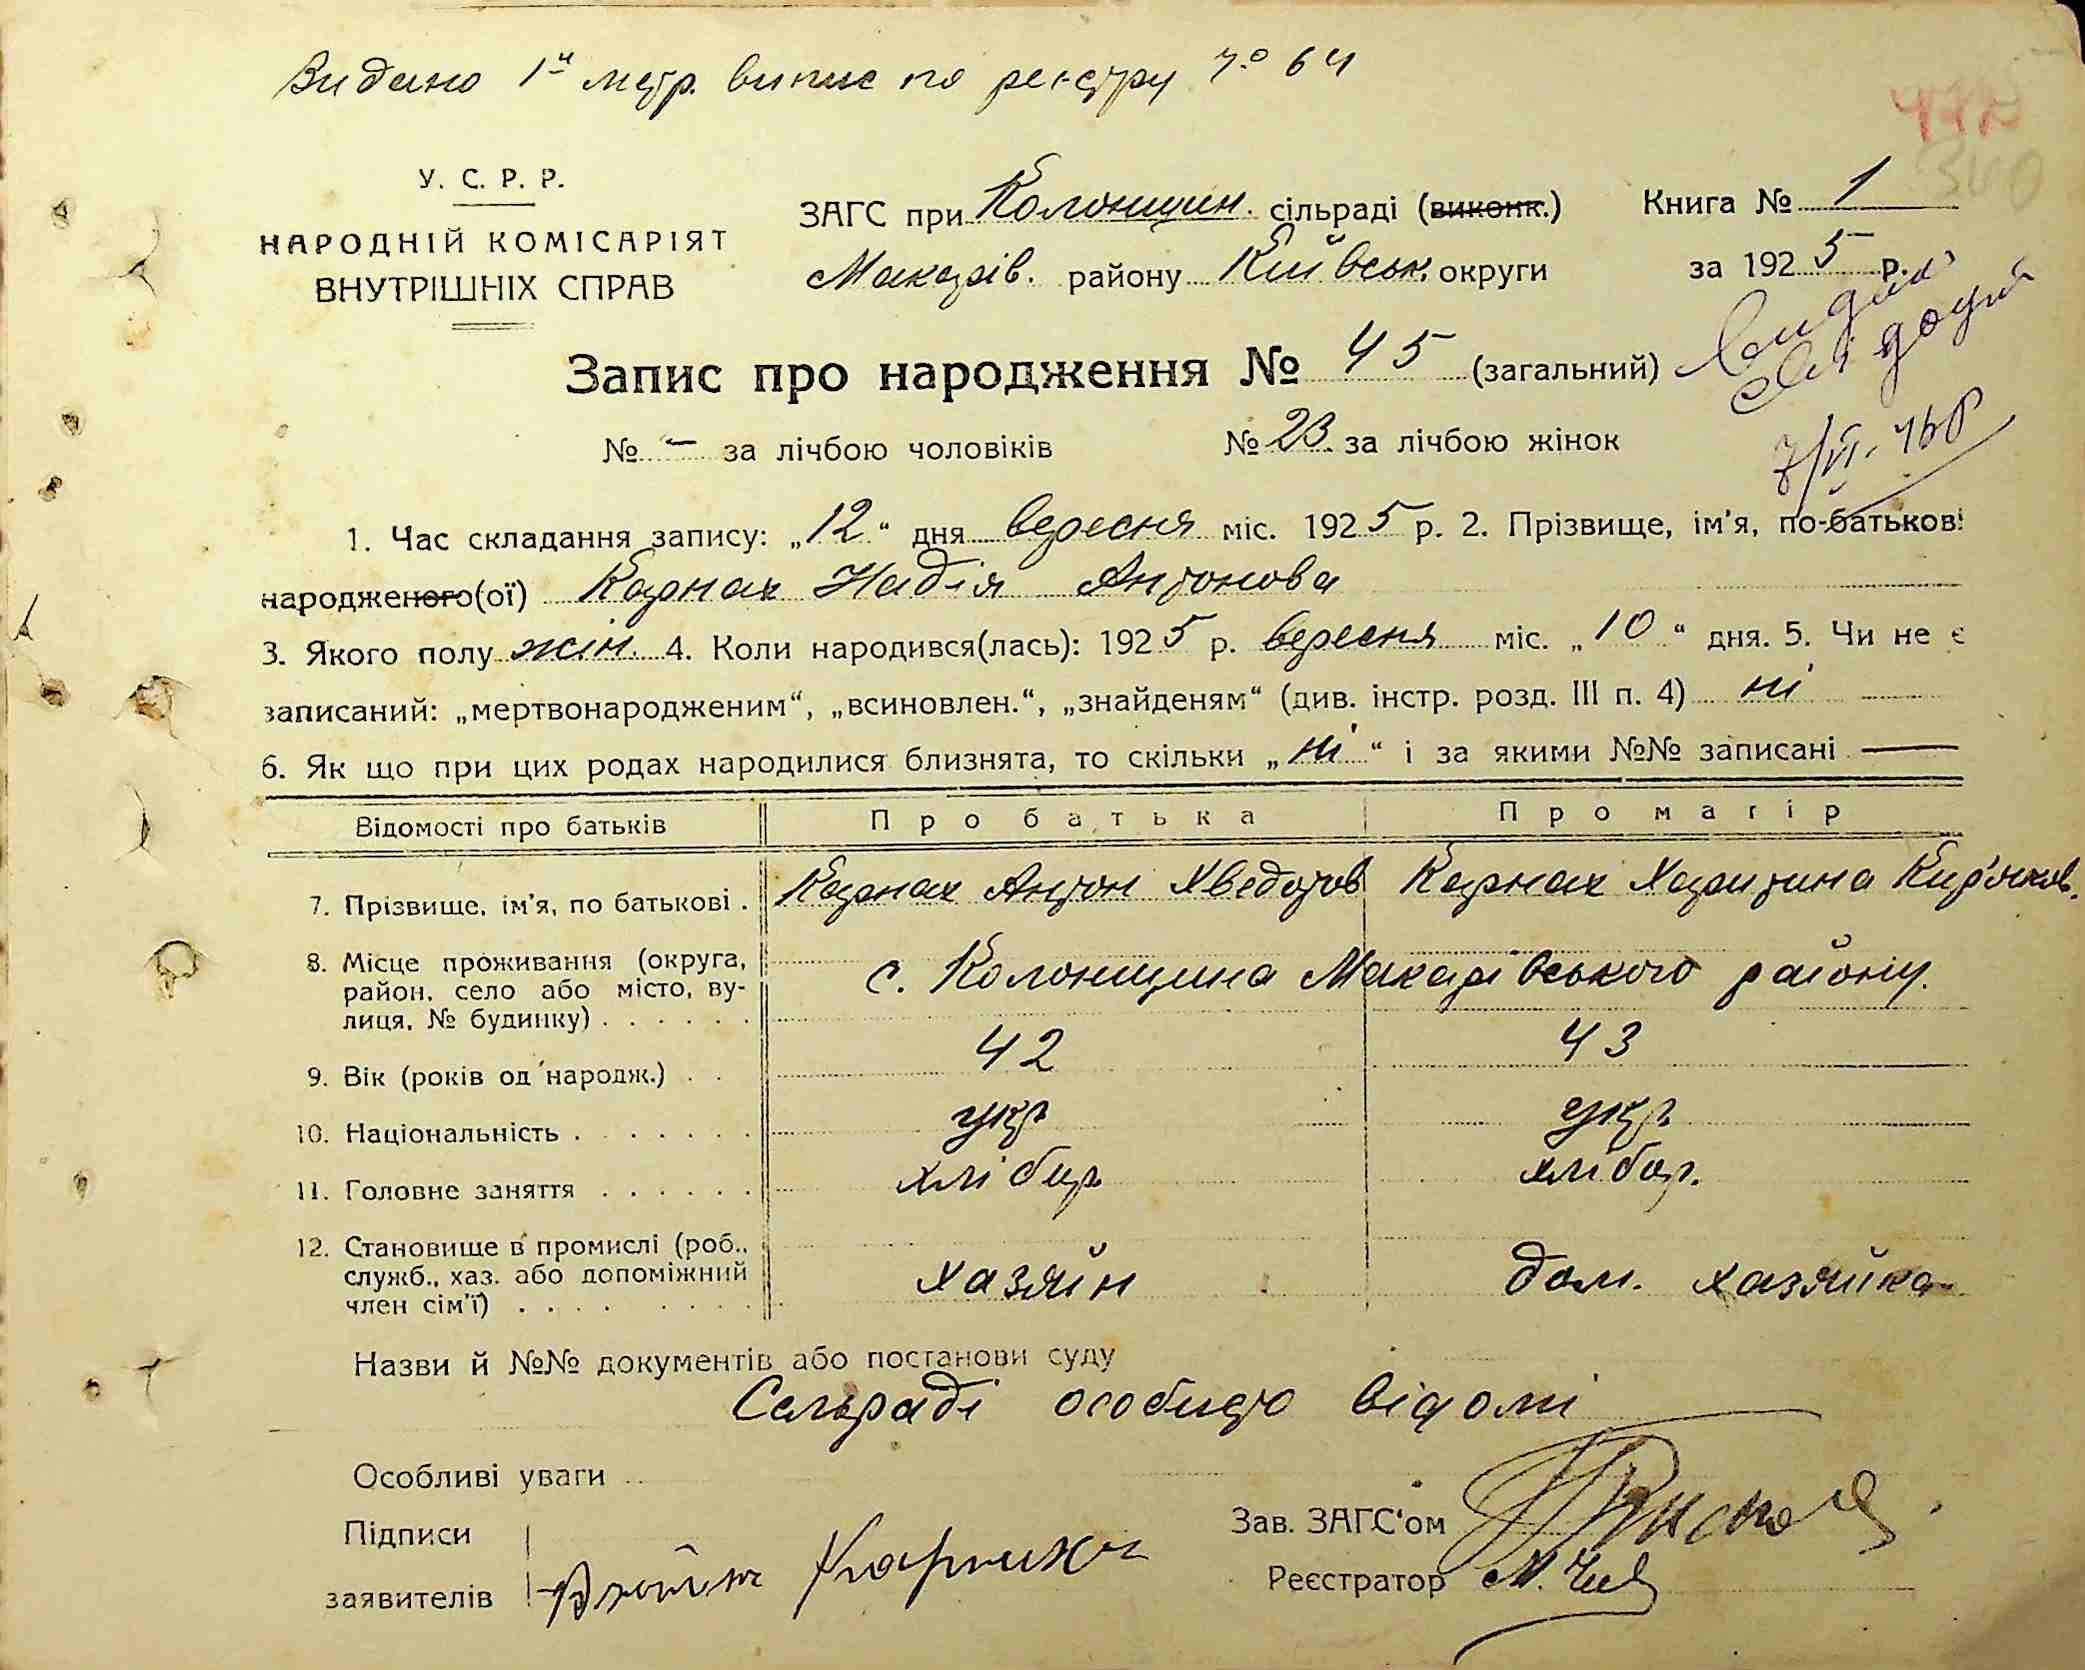 Видано 1й метр. випис по реєстру № 64
У. С. Р. Р.
НАРОДНІЙ КОМІСАРІЯТ
ВНУТРІШНІХ СПРАВ
ЗАГС при Колонщин. сільраді (виконк.)
Макарів. району Київськ. округи
Книга № 1
за 1925 р.
Запис про народження № 45 (загальний)
№ – за лічбою чоловіків № 23. за лічбою жінок
7/VI.
1. Час складання запису: „12“ дня вересня міс. 1925 р. 2. Прізвище, ім'я, по-батьков!
народженого(ої) Карнах Надія Антонова
3. Якого полу жін. 4. Коли народився(лась): 1925 р. вересня міс. „10“ дня. 5. Чи не є
записаний: „мертвонародженим“, „всиновлен.“, „знайденям“ (див. інстр. розд. III п. 4) ні
6. Як що при цих родах народилися близнята, то скільки „ні“ і за якими №№ записані —
Відомості про батьків Про батька Про матір
7. Прізвище, ім'я, по батькові . Карнах Антон Хведотов Карнах Харитина Кир'яков.
8. Місце проживання (округа,
район, село або місто, ву-
лиця, № будинку) . . . . . . с. Колонщина Макарівського району.
9. Вік (років од народж.) . . 42 43
10. Національність . . . . . . . укр. укр.
11. Головне заняття . . . . . . хлібор. хлібор.
12. Становище в промислі (роб.,
служб., хаз. або допоміжний
член сім'ї) . . . . . . . . . хазяїн дом. хазяйка
Назви й №№ документів або постанови суду
Сельраді особисто відомі
Особливі уваги
Підписи
заявителів
Зав. ЗАГС'ом
Реєстратор